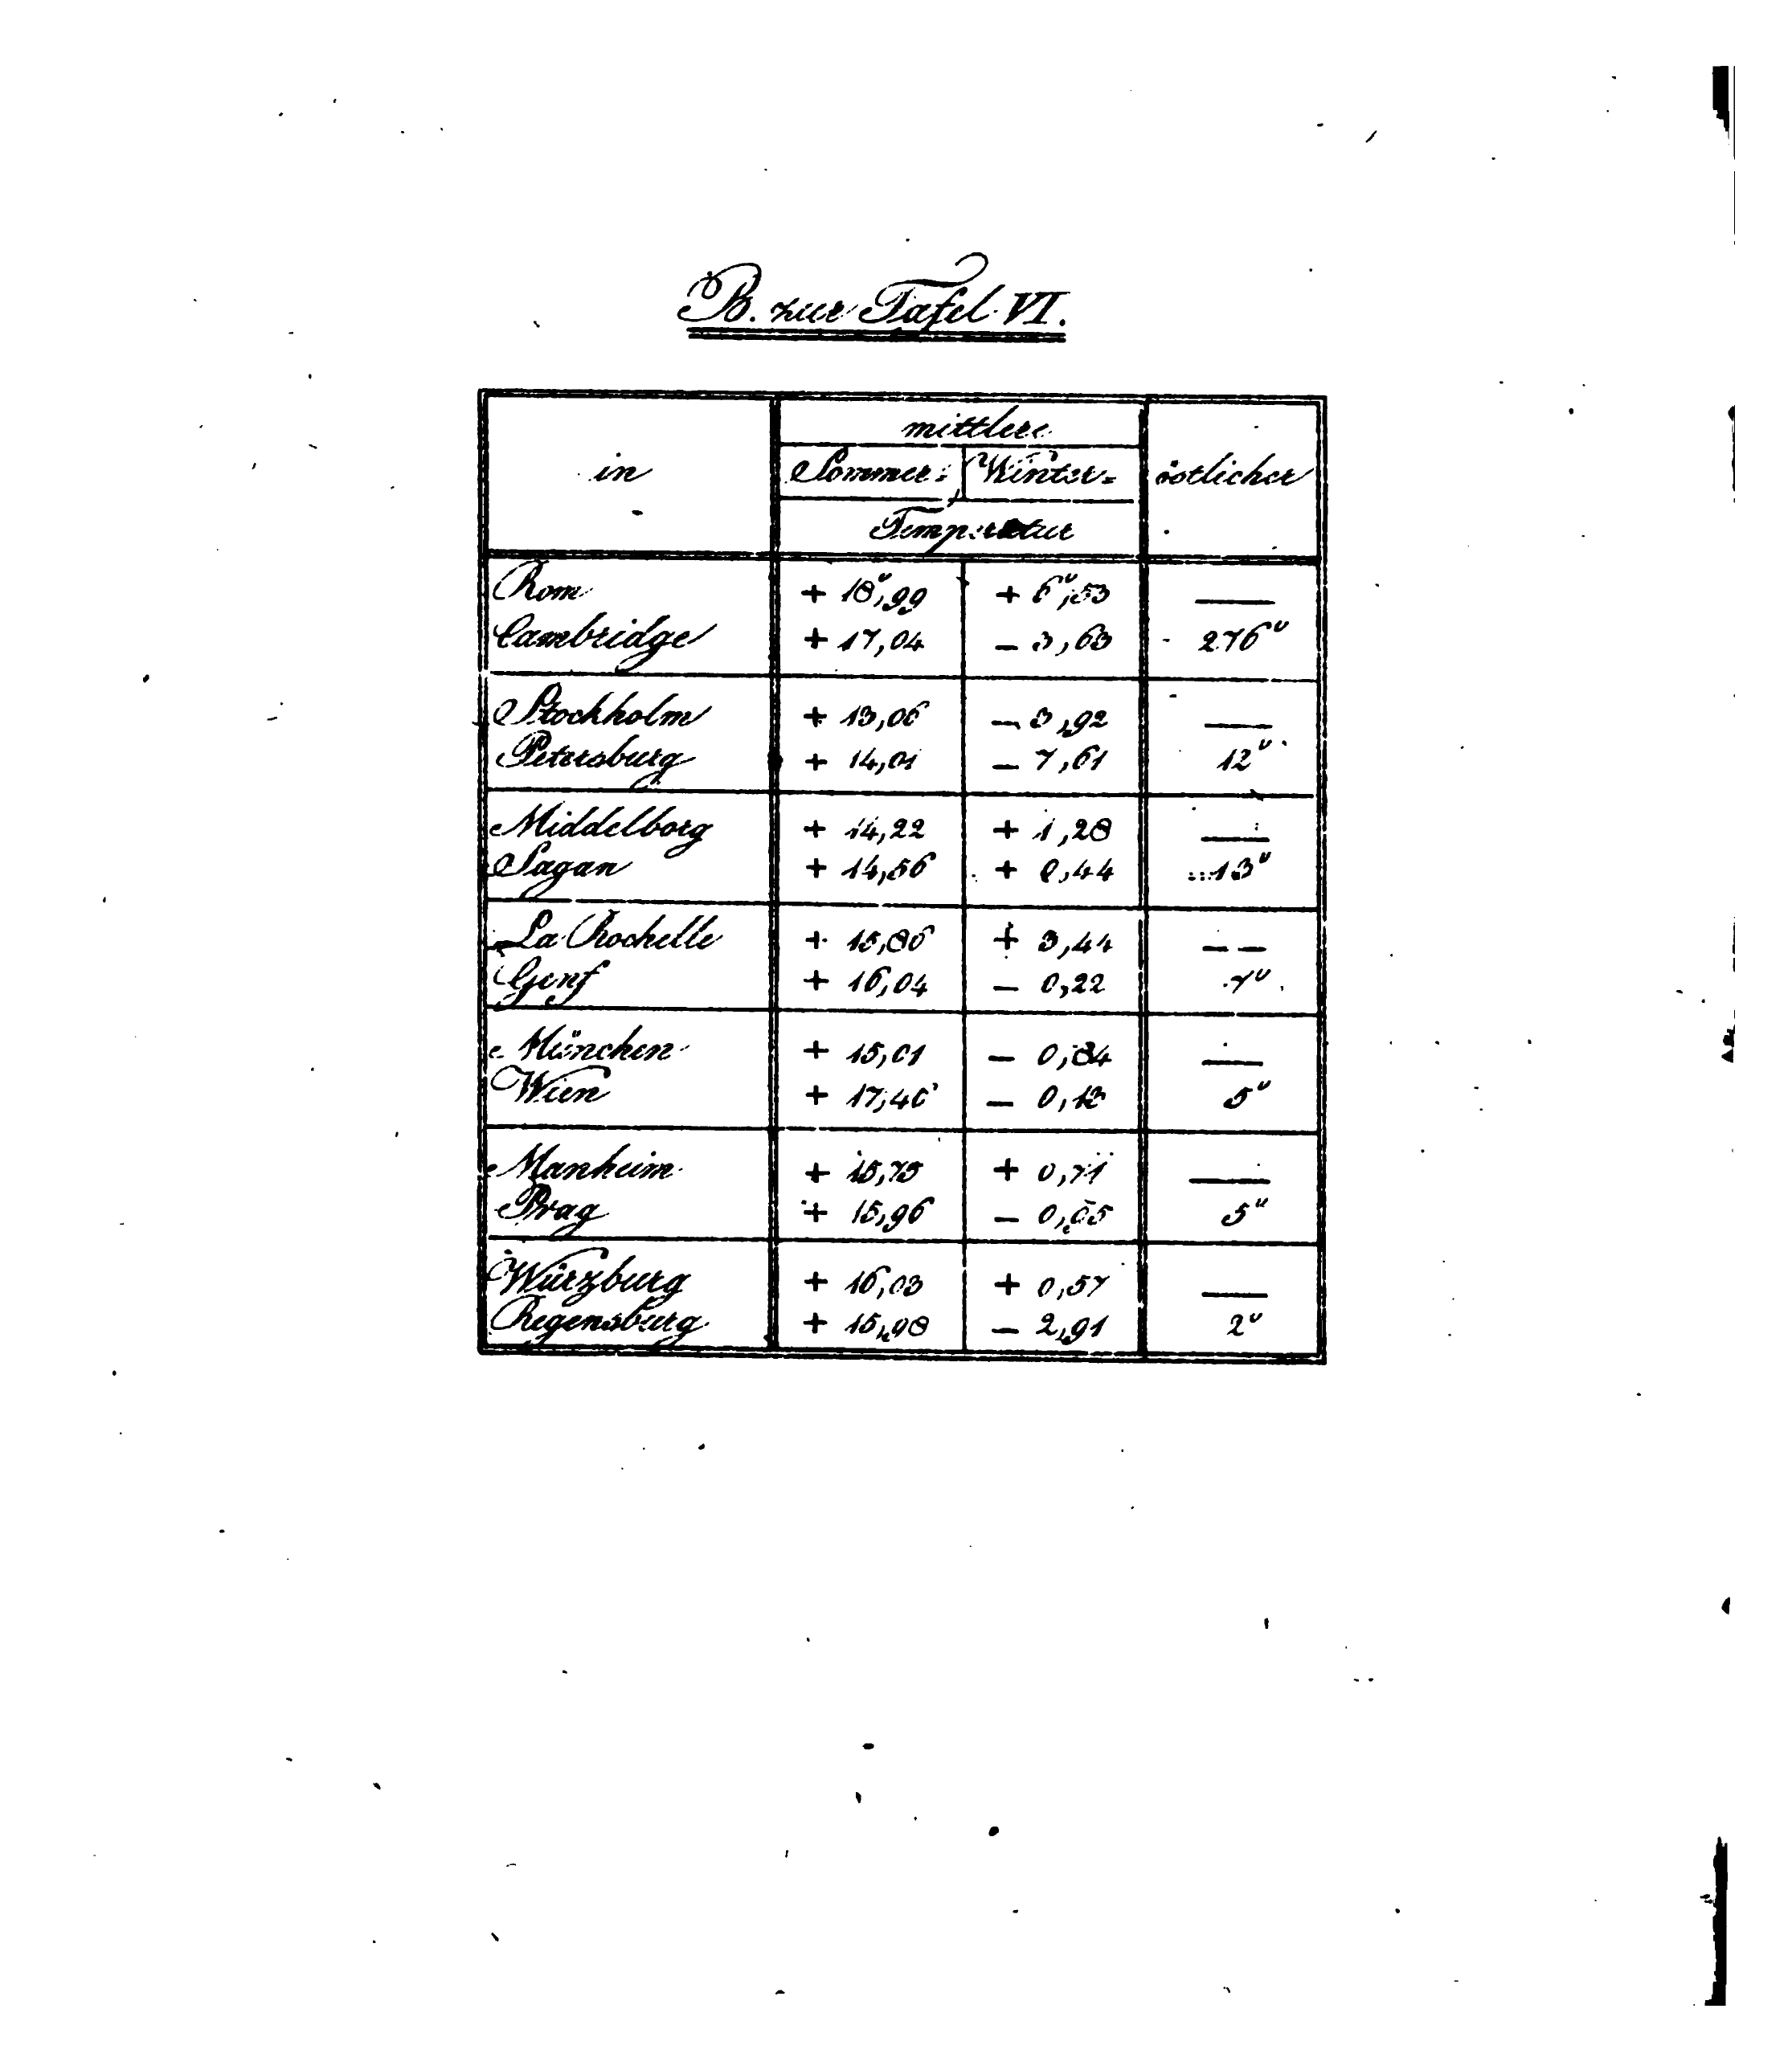 B. zur Tafel VI.
mittlere
in Sommer= Winter= östlicher
Temperatur
Rom + 18°,99 + 6°,53 —
Cambridge + 17,04 − 3,63 276°
Stockholm + 13,06 − 3,92 —
Petersburg + 14,01 − 7,61 12°
Middelborg + 14,22 + 1,28 —
Sagan + 14,56 + 0,44 13°
La Rochelle + 15,86 + 3,44 —
Genf + 16,04 − 0,22 7°
München + 15,01 − 0,84 —
Wien + 17,46 − 0,18 5°
Manheim + 15,75 + 0,71 —
Prag + 15,96 − 0,05 5°
Würzburg + 16,03 + 0,57 —
Regensburg + 15,98 − 2,91 2°